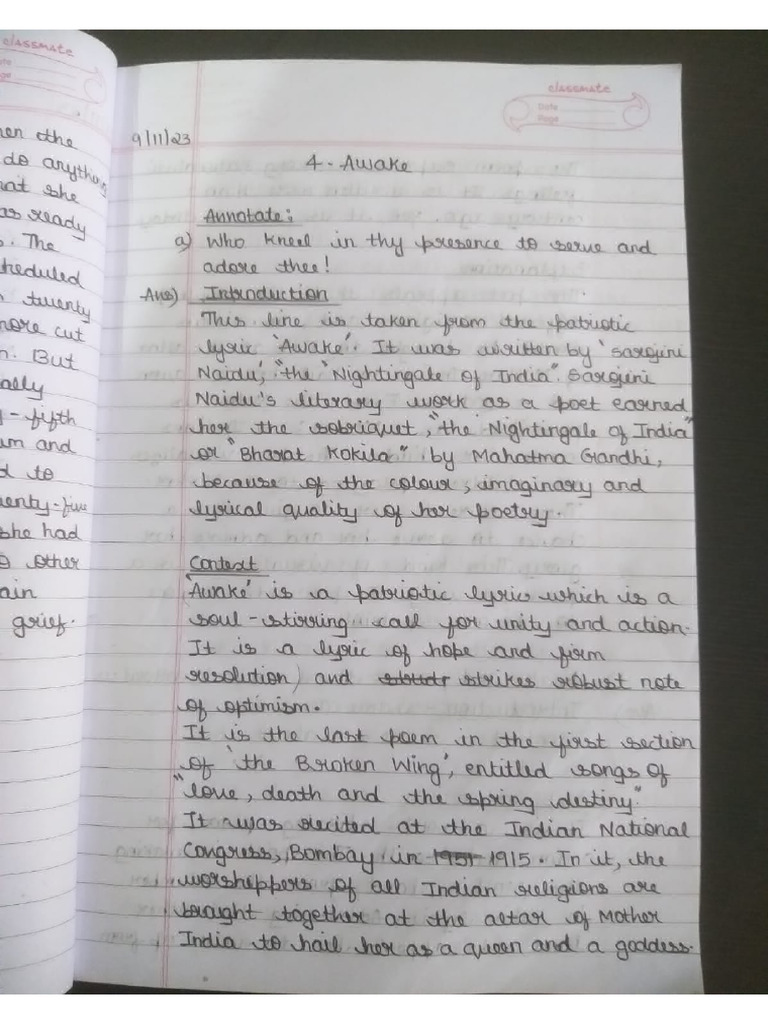 classmate
en the
do anything
at she
as ready
. The
heduled
twenty
more cut
n. But
ally
y-fifth
um and
d to
wenty-five
she had
o other
ain
grief.
classmate
Date
Page
9/11/23
4 - Awake
Annotate :
a) Who kneel in thy presence to serve and
adore thee!
Ans) Introduction
This line is taken from the patriotic
lyric 'Awake'. It was written by 'Sarojini
Naidu', "the 'Nightingale of India". Sarojini
Naidu's literary work as a poet earned
her the sobriquet, "the Nightingale of India"
or "Bharat Kokila" by Mahatma Gandhi,
because of the colour, imaginary and
lyrical quality of her poetry.
Context
'Awake' is a patriotic lyric which is a
soul-stirring call for unity and action.
It is a lyric of hope and firm
resolution) and strikes robust note
of optimism.
It is the last poem in the first section
of 'the Broken Wing', entitled songs of
"love, death and the spring destiny"
It was recited at the Indian National
Congress, Bombay in 1951 1915. In it, the
worsheppers of all Indian religions are
braught together at the altar of Mother
India to hail her as a queen and a goddess.